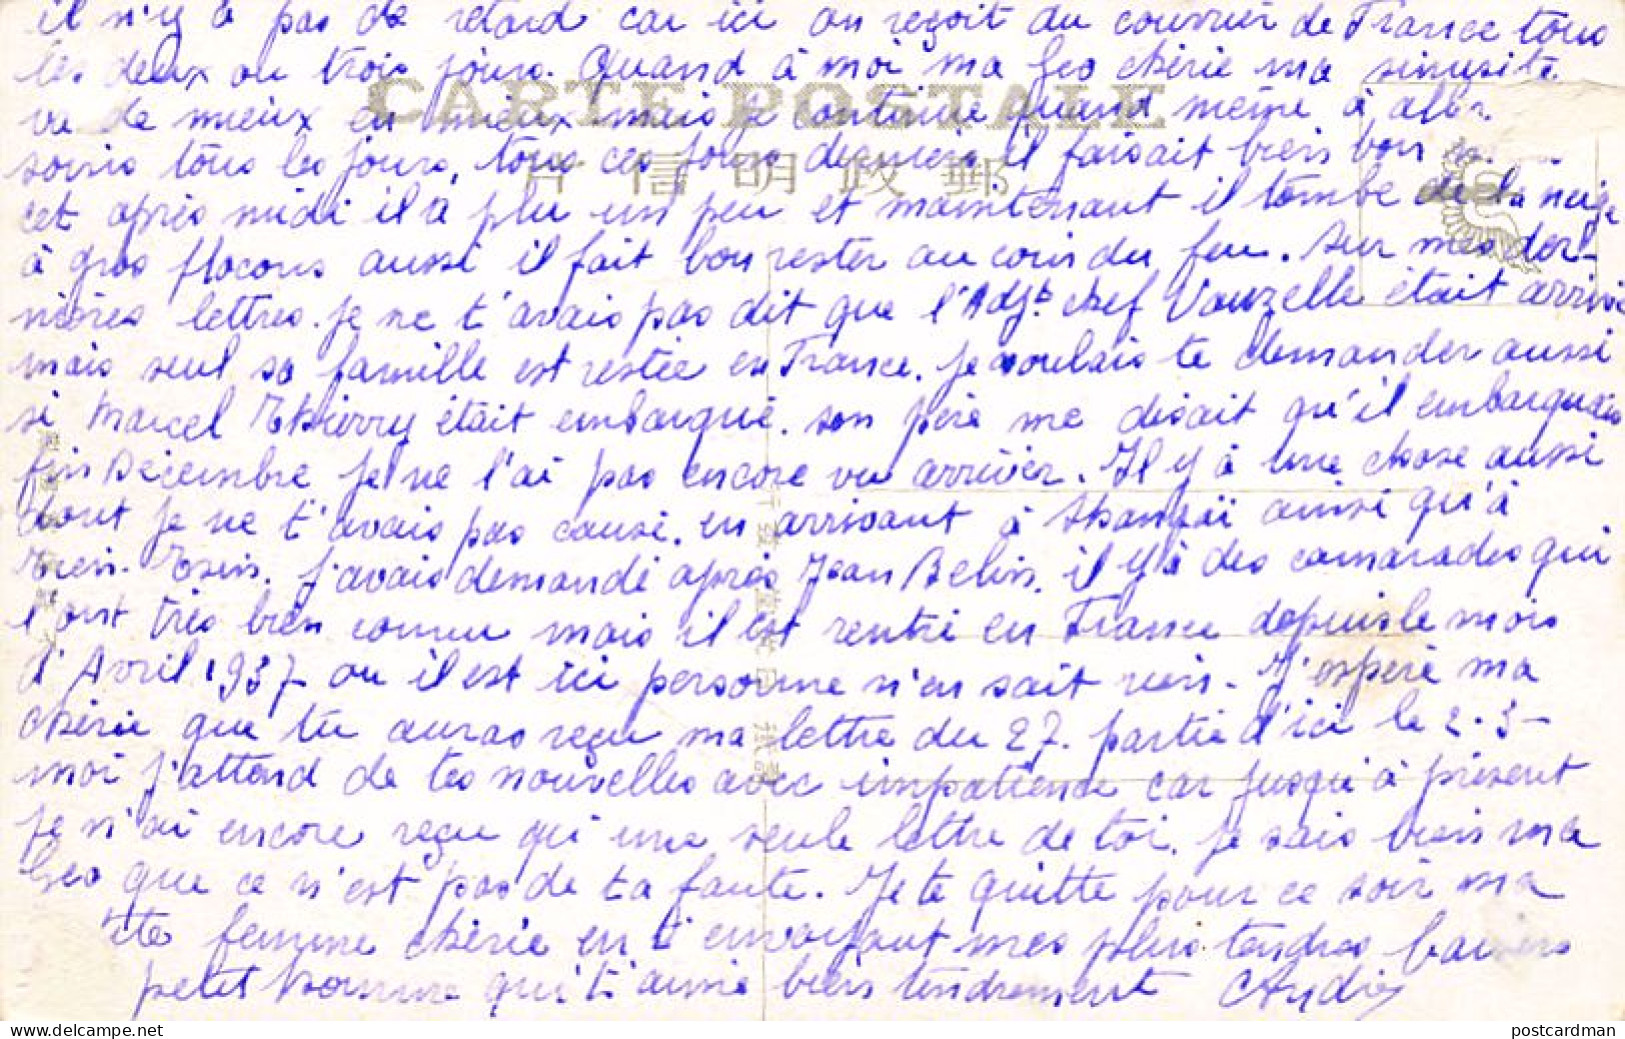 il n'y a pas de retard car ici on reçoit du courrier de France tous
les deux ou trois jours. Quand à moi ma Geo chérie ma sinusite
va de mieux en mieux mais je continue quand même à aller
CARTE POSTALE
soins tous les jours, tous ces jours derniers il faisait bien bon
片信明政郵
cet après midi il à plu un peu et maintenant il tombe de la neige
à gros flocons aussi il fait bon rester au coin du feu. Sur mes der-
nières lettres je ne t'avais pas dit que l'Adjt chef Vouzelle était arrivé
mais seul sa famille est restée en France. je voulais te demander aussi
si Marcel Thierry était embarqué. son père me disait qu'il embarquais
fin Décembre je ne l'ai pas encore vu arriver. Il y à une chose aussi
dont je ne t'avais pas causé. en arrivant à Shangaï ainsi qu'à
Tien-Tsin. j'avais demandé après Jean Belin. il y à des camarades qui
l'ont très bien connu mais il est rentré en France depuis le mois
d'Avril 1937 ou il est ici personne n'en sait rien - J'espère ma
chérie que tu auras reçu ma lettre du 27. partie d'ici le 2-3-
moi j'attend de tes nouvelles avec impatience car jusqu'à présent
je n'ai encore reçu qu'une seule lettre de toi. je sais bien ma
Geo que ce n'est pas de ta faute. Je te quitte pour ce soir ma
'tite femme chérie en t'envoyant mes plus tendres baisers
petit homme qui t'aime bien tendrement André
© delcampe.net
postcardman